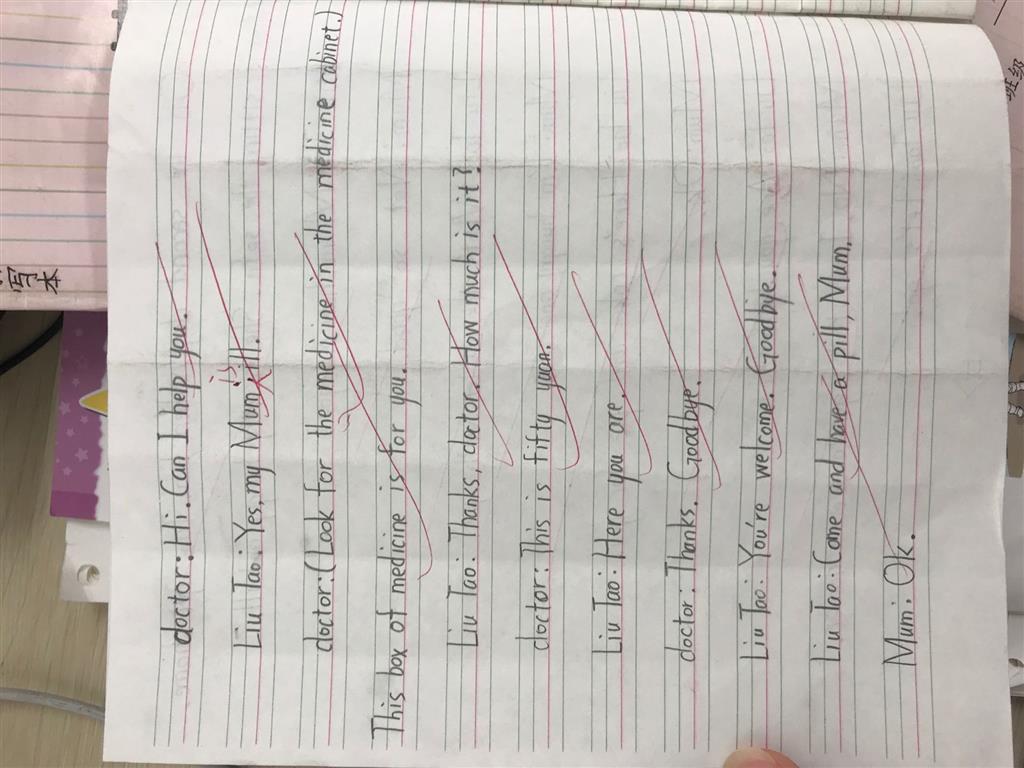 doctor: Hi. Can I help you.
Liu Tao: Yes, my Mum is ill.
doctor: (Look for the medicine in the medicine cabinet.)
This box of medicine is for you.
Liu Tao: Thanks, doctor. How much is it?
doctor: This is fifty yuan.
Liu Tao: Here you are.
doctor: Thanks. Goodbye.
Liu Tao: You're welcome. Goodbye.
Liu Tao: Come and have a pill, Mum.
Mum: Ok.
写本
班级